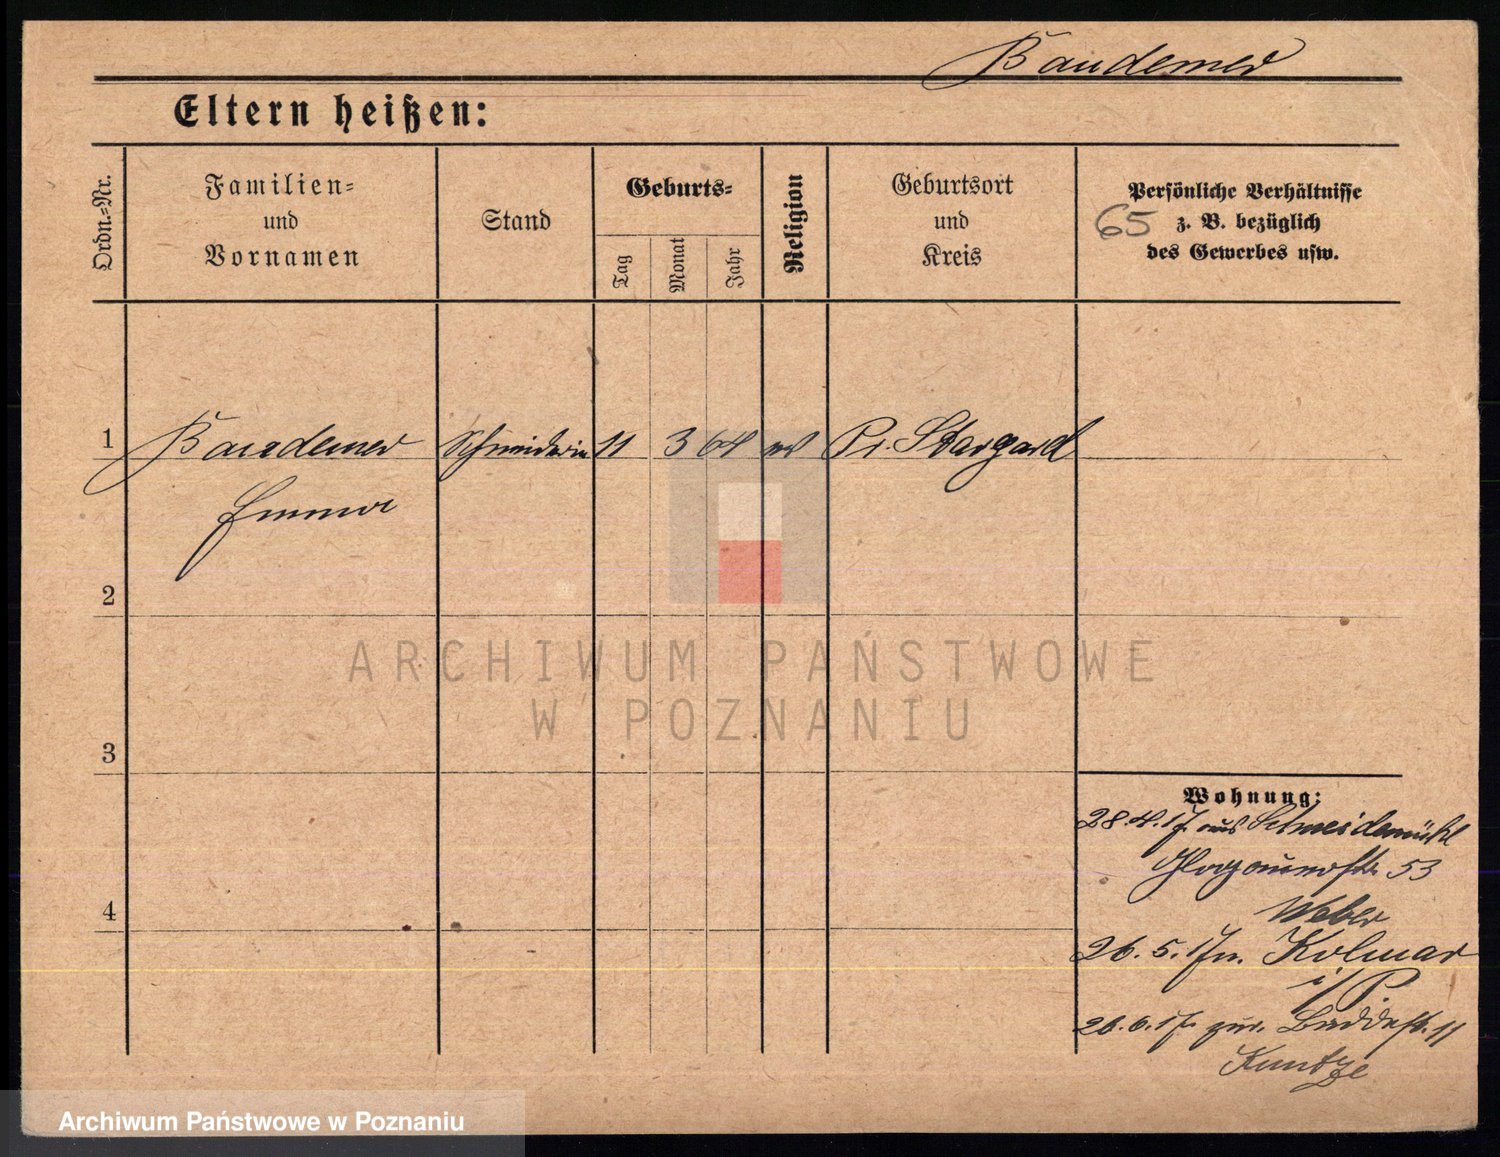 Bandemer
Eltern heißen:
Ordn.-Nr.
Familien-
und
Vornamen
Stand
Geburts-
Tag
Monat
Jahr
Religion
Geburtsort
und
Kreis
Persönliche Verhältnisse
z. B. bezüglich
des Gewerbes usw.
65
1 Bandemer Schneiderin 11 3 64 ev Pr. Stargard
Emma
2
3
4
Wohnung:
28.4.17. aus Schneidemühl
Glogauerstr. 53
Weber
26.5.17 n. Kolmar
i/P.
26.6.17. zur. 11
Kuntze
ARCHIWUM PAŃSTWOWE
W POZNANIU
Archiwum Państwowe w Poznaniu